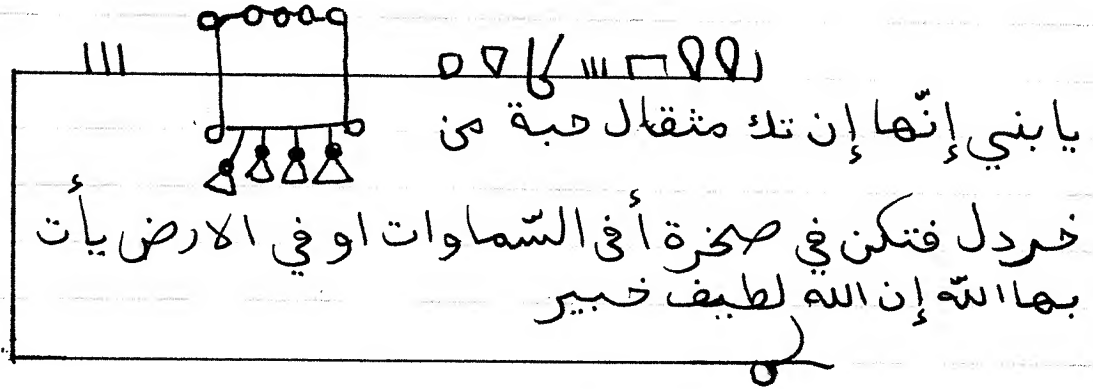 يا بني إنّها إن تك مثقال حبة من
خردل فتكن في صخرة أفى السّماوات او في الارض يأت
بها اللّه إن الله لطيف خبير